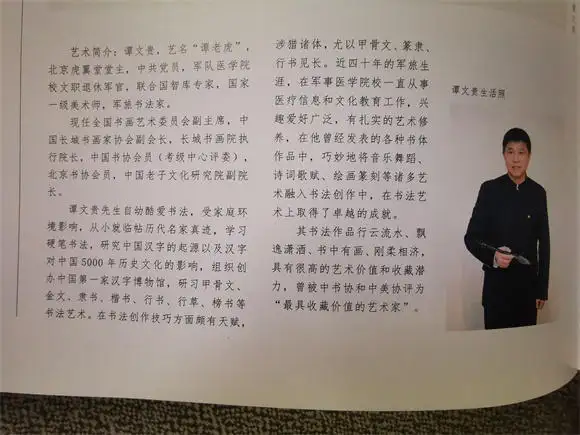 艺术简介：谭文贵，艺名“谭老虎”，
北京虎翼堂堂主，中共党员，军队医学院
校文职退休军官，联合国智库专家，国家
一级美术师，军旅书法家。
现任全国书画艺术委员会副主席，中
国长城书画家协会副会长，长城书画院执
行院长，中国书协会员（考级中心评委），
北京书协会员，中国老子文化研究院副院
长。
谭文贵先生自幼酷爱书法，受家庭环
境影响，从小就临帖历代名家真迹，学习
硬笔书法，研究中国汉字的起源以及汉字
对中国5000年历史文化的影响，组织创
办中国第一家汉字博物馆，研习甲骨文、
金文、隶书、楷书、行书、行草、榜书等
书法艺术。在书法创作技巧方面颇有天赋，
涉猎诸体，尤以甲骨文、篆隶、
行书见长。近四十年的军旅生
涯，在军事医学院校一直从事
医疗信息和文化教育工作，兴
趣爱好广泛，有扎实的艺术修
养，在他曾经发表的各种书体
作品中，巧妙地将音乐舞蹈、
诗词歌赋、绘画篆刻等诸多艺
术融入书法创作中，在书法艺
术上取得了卓越的成就。
其书法作品行云流水、飘
逸潇洒、书中有画、刚柔相济，
具有很高的艺术价值和收藏潜
力，曾被中书协和中美协评为
“最具收藏价值的艺术家”。
谭文贵生活照